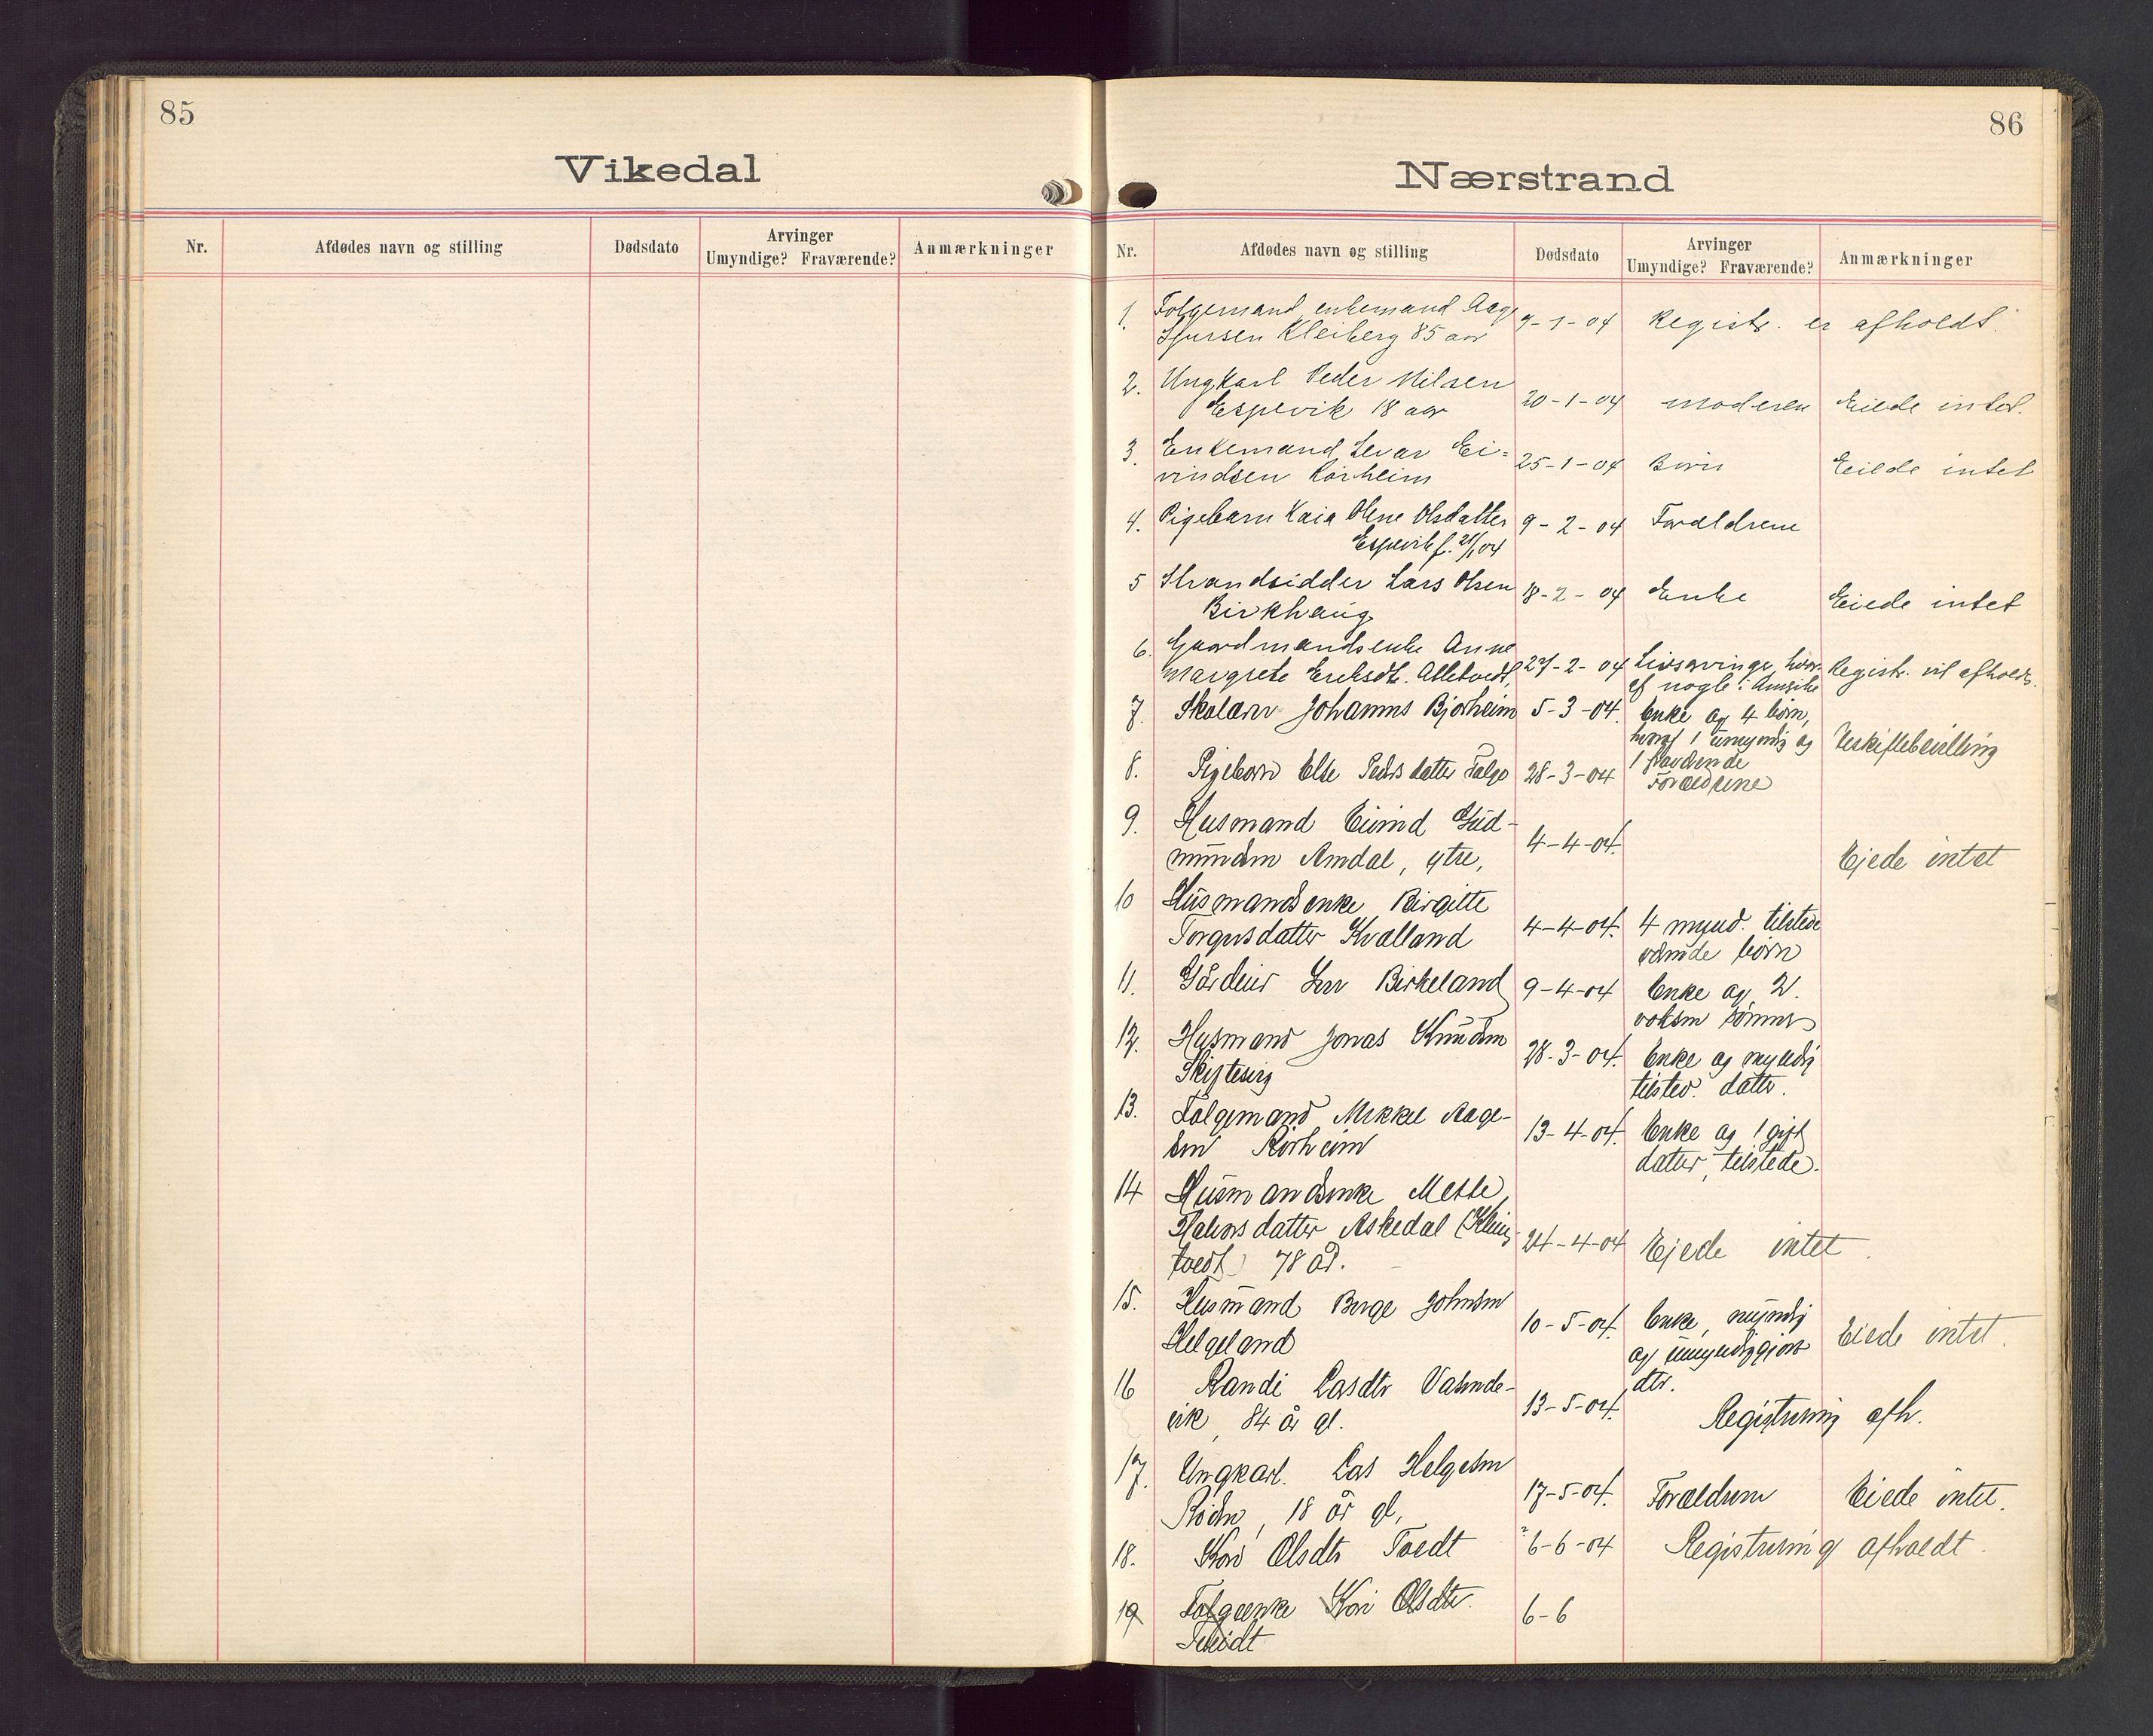 85
Vikedal
Nr. Afdødes navn og stilling Dødsdato Arvinger Umyndige? Fraværende? Anmærkninger
86
Nærstrand
Nr. Afdødes navn og stilling Dødsdato Arvinger Umyndige? Fraværende? Anmærkninger
1. Folgemand, enkemand Aage 9-1-04 Registr. er afholdt.
Sjursen Kleiberg 85 aar
2. Ungkarl Peder Nilsen
Espevik 18 aar 20-1-04 Moderen Eiede intet.
3. Enkemand Sevar Ei- 25-1-04 Børn Eiede intet
vindsen Rørheim
4. Pigebarn Kaia Oline Olsdatter 9-2-04 Forældrene
Espevik f. 21/1 04
5 Strandsidder Lars Olsen 18-2-04 Enke Eiede intet
Birkhaug
6. Gaardmandsenke Anne
Margrete Eriksdt. 27-2-04 Livsarvinge, hvor- Registr. vil afholdes.
af nogle i Amerika
7. Skolelærer Johannes Bjorheim 5-3-04. Enke og 4 børn,
hvoraf 1 umyndig og Uskiftebevilling
1 fraværende
8. Pigebarn Else Pedersdatter 28-3-04 Forældrene
9. Husmand Eivind Gud-
mundsen Amdal, ytre, 4-4-04. Ejede intet
10 Husmandsenke Birgitte
Torgersdatter Kvalland 4-4-04. 4 mynd. tilstede
værende børn
11. Gårdeier Birkeland 9-4-04 Enke og 2.
voksne sønner
12. Husmand Jonas Knudsen 28-3-04. Enke og myndig
tilsted. datter.
13. Folgemand Mikkel Aage- 13-4-04. Enke og 1 gift
sen Rørheim datter, tilstede.
14 Husmandsenke Mette
Halvorsdatter Askedal 24-4-04 Ejede intet.
78 år.
15. Husmand Børge Johnsen 10-5-04. Enke, myndig
Helgeland og umyndiggjort Eiede intet.
dtr.
16 Randi Larsdtr
vik, 84 år gl. 13-5-04. Registrering afh.
17. Ungkarl. Lars Helgesen
18 år gl, 17-5-04. Forældrene Eiede intet.
18. Kari Olsdtr Tvedt ? 6-6-04 Registrering afholdt.
19 Folgeenke Kari Olsdtr. 6-6
Tveidt